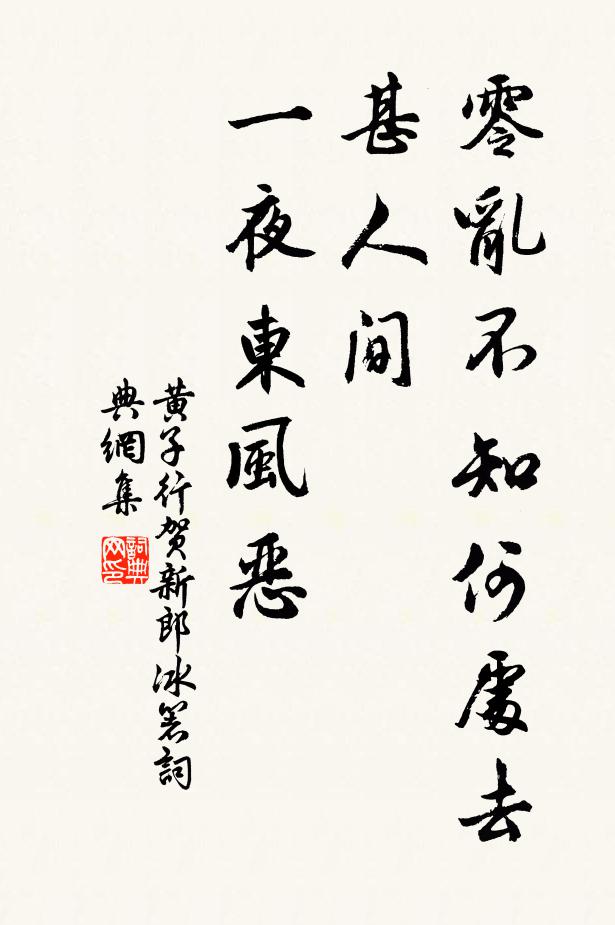 零亂不知何處去
甚人間
一夜東風惡
黄子行賀新郎冰箸詞
典網集
詞典
网印